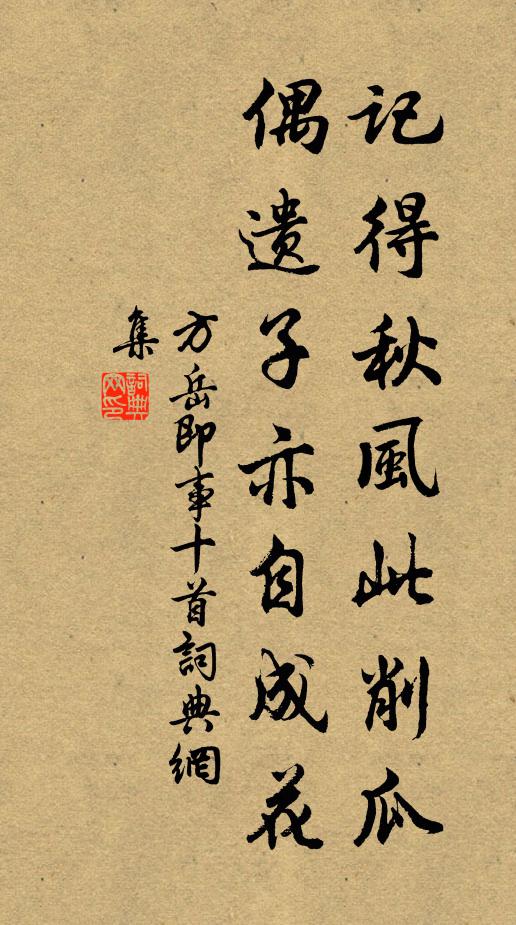 記得秋風此削瓜
偶遗子亦自成花
方岳即事十首詞典網
集
詞典網印